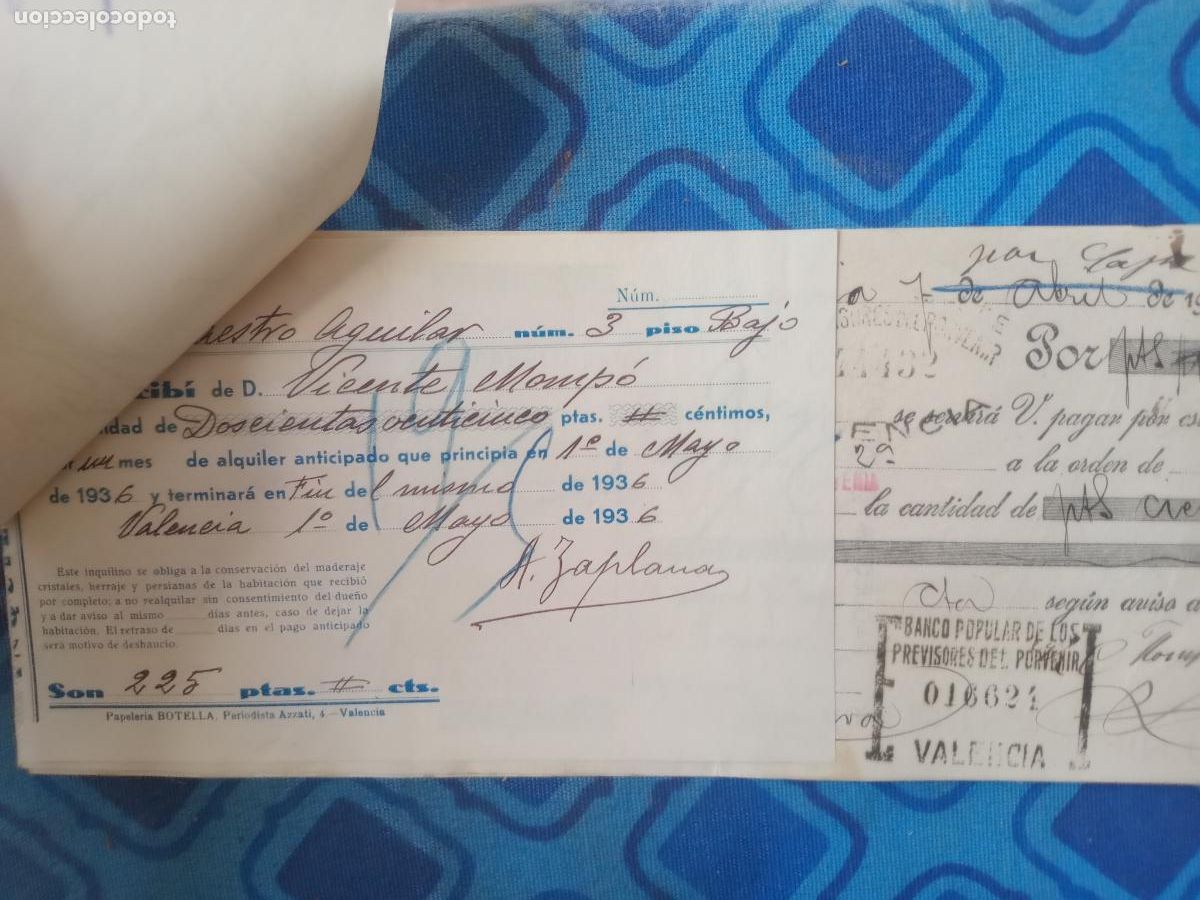 todocoleccion
Núm.
aestro Aguilar núm. 3 piso Bajo
cibí de D. Vicente Mompó
idad de Doscientas venticinco ptas. // céntimos,
un mes de alquiler anticipado que principia en 1º de Mayo
de 1936 y terminará en Fin del mismo de 1936
Valencia 1º de Mayo de 1936
A. Zaplana
Este inquilino se obliga a la conservación del maderaje
cristales, herraje y persianas de la habitación que recibió
por completo; a no realquilar sin consentimiento del dueño
y a dar aviso al mismo días antes, caso de dejar la
habitación. El retraso de días en el pago anticipado
será motivo de deshaucio.
Son 225 ptas. // cts.
Papelería BOTELLA, Periodista Azzati, 4 - Valencia
por
a 7 de Abril de 19
Por pts
se servirá V. pagar por es
a la orden de
la cantidad de pts
según aviso
BANCO POPULAR DE LOS
PREVISORES DEL PORVENIR
016624
VALENCIA